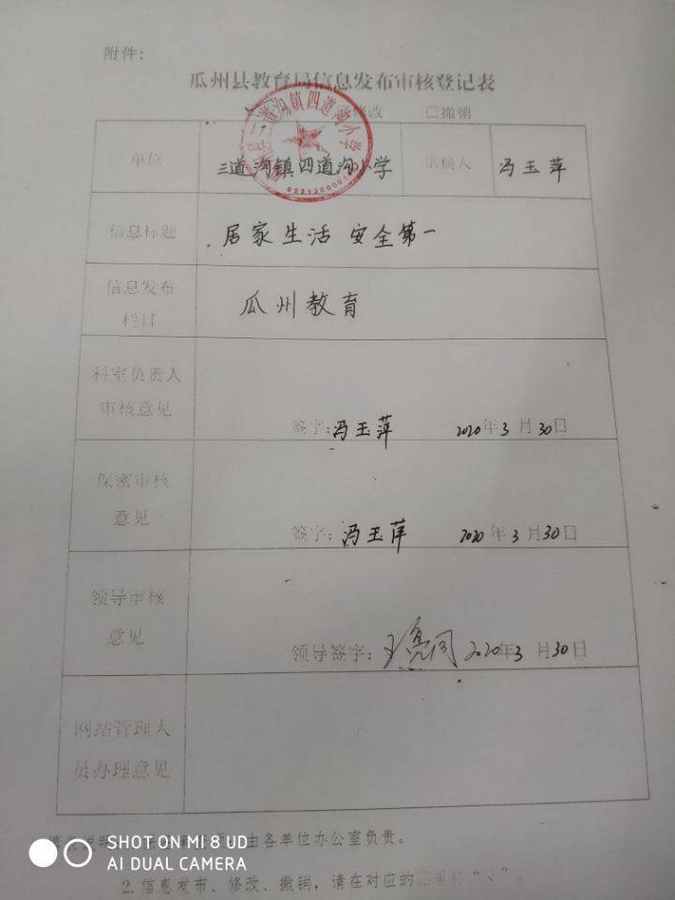 附件：
瓜州县教育局信息发布审核登记表
修改 □撤销
单位 三道沟镇四道沟小学 供稿人 冯玉萍
信息标题 居家生活 安全第一
信息发布
栏目
瓜州教育
科室负责人
审核意见
签字：冯玉萍 2020年3月30日
保密审核
意见
签字：冯玉萍 2020年3月30日
领导审核
意见
领导签字： 2020年3月30日
网站管理人
员办理意见
由各单位办公室负责。
SHOT ON MI 8 UD
AI DUAL CAMERA
2.信息发布、修改、撤销，请在对应的□里打“√”。